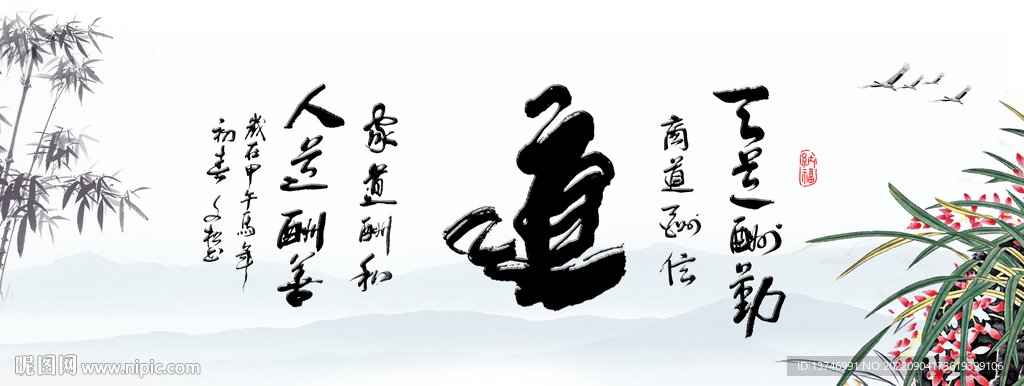 天道酬勤
商道酬信
道
家道酬和
人道酬善
歲在甲午馬年
初春文松書
納福
昵图网 www.nipic.com
ID:13746991 NO:20220904173619399106